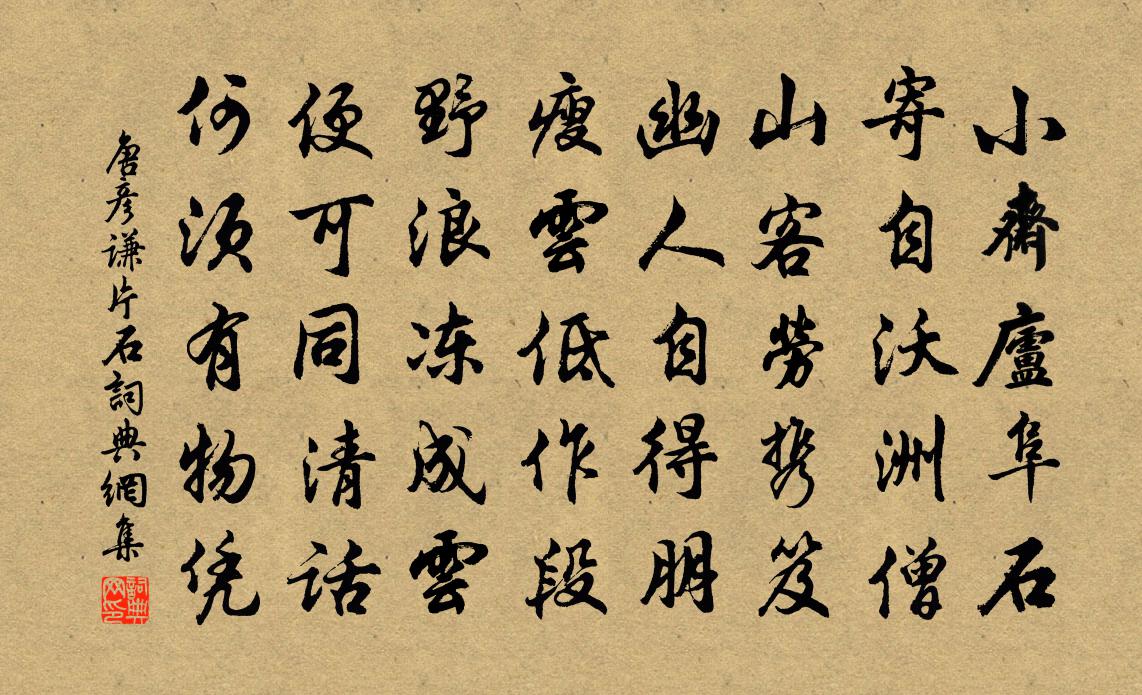 小齋廬阜石
寄自沃洲僧
山客勞携笈
幽人自得朋
瘦雲低作段
野浪冻成雲
便可同清話
何須有物凭
唐彦謙片石詞典網集
詞典网印